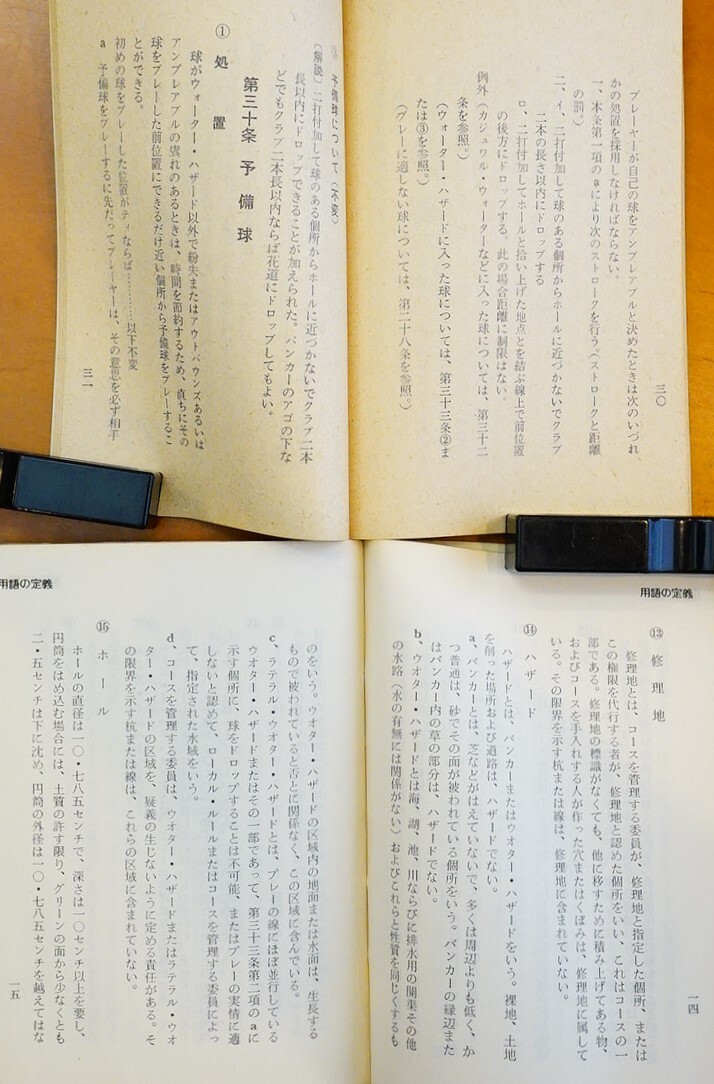 プレーヤーが自己の球をアンプレアブルと決めたときは次のいづれ
かの処置を採用しなければならない。
一、本条第一項のaにより次のストロークを行う(ストロークと距離
の罰。)
二、イ、二打付加して球のある個所からホールに近づかないでクラブ
二本の長さ以内にドロップする
ロ、二打付加してホールと拾い上げた地点とを結ぶ線上で前位置
の後方にドロップする。此の場合距離に制限はない。
例外(カジュワル・ウォーターなどに入った球については、第三十二
条を参照。)
(ウォーター・ハザードに入った球については、第三十三条②ま
たは③を参照。)
(プレーに適しない球については、第二十八条を参照。)
三〇
予備球について(不変)
〔解説〕二打付加して球のある個所からホールに近づかないでクラブ二本
長以内にドロップできることが加えられた。バンカーのアゴの下な
どでもクラブ二本長以内ならば花道にドロップしてもよい。
第三十条 予備球
① 処置
球がウォーター・ハザード以外で紛失またはアウトバウンズあるいは
アンプレアブルの虞れのあるときは、時間を節約するため、直ちにその
球をプレーした前位置にできるだけ近い個所から予備球をプレーするこ
とができる。
初めの球をプレーした位置がティならば…………以下不変
a 予備球をプレーするに先だってプレーヤーは、その意思を必ず相手
三一
用語の定義
⑬ 修理地
修理地とは、コースを管理する委員が、修理地と指定した個所、または
この権限を代行する者が、修理地と認めた個所をいい、これはコースの一
部である。修理地の標識がなくても、他に移すために積み上げてある物、
およびコースを手入れする人が作った穴またはくぼみは、修理地に属して
いる。その限界を示す杭または線は、修理地に含まれていない。
⑭ ハザード
ハザードとは、バンカーまたはウオター・ハザードをいう。裸地、土地
を削った場所および道路は、ハザードでない。
a、バンカーとは、芝などがはえていないで、多くは周辺よりも低く、か
つ普通は、砂でその面が被われている個所をいう。バンカーの縁辺また
はバンカー内の草の部分は、ハザードでない。
b、ウオター・ハザードとは海、湖、池、川ならびに排水用の開渠その他
の水路(水の有無には関係がない)およびこれらと性質を同じくするも
一四
用語の定義
のをいう。ウオター・ハザードの区域内の地面または水面は、生長する
もので被われていると否とに関係なく、この区域に含んでいる。
c、ラテラル・ウオター・ハザードとは、プレーの線にほぼ並行している
ウオター・ハザードまたはその一部であって、第三十三条第二項のaに
示す個所に、球をドロップすることは不可能、またはプレーの実情に適
しないと認めて、ローカル・ルールまたはコースを管理する委員によっ
て、指定された水域をいう。
d、コースを管理する委員は、ウオター・ハザードまたはラテラル・ウオ
ター・ハザードの区域を、疑義の生じないように定める責任がある。そ
の限界を示す杭または線は、これらの区域に含まれていない。
⑯ ホール
ホールの直径は一〇・七八五センチで、深さは一〇センチ以上を要し、
円筒をはめ込む場合には、土質の許す限り、グリーンの面から少なくとも
二・五センチは下に沈め、円筒の外径は一〇・七八五センチを越えてはな
一五